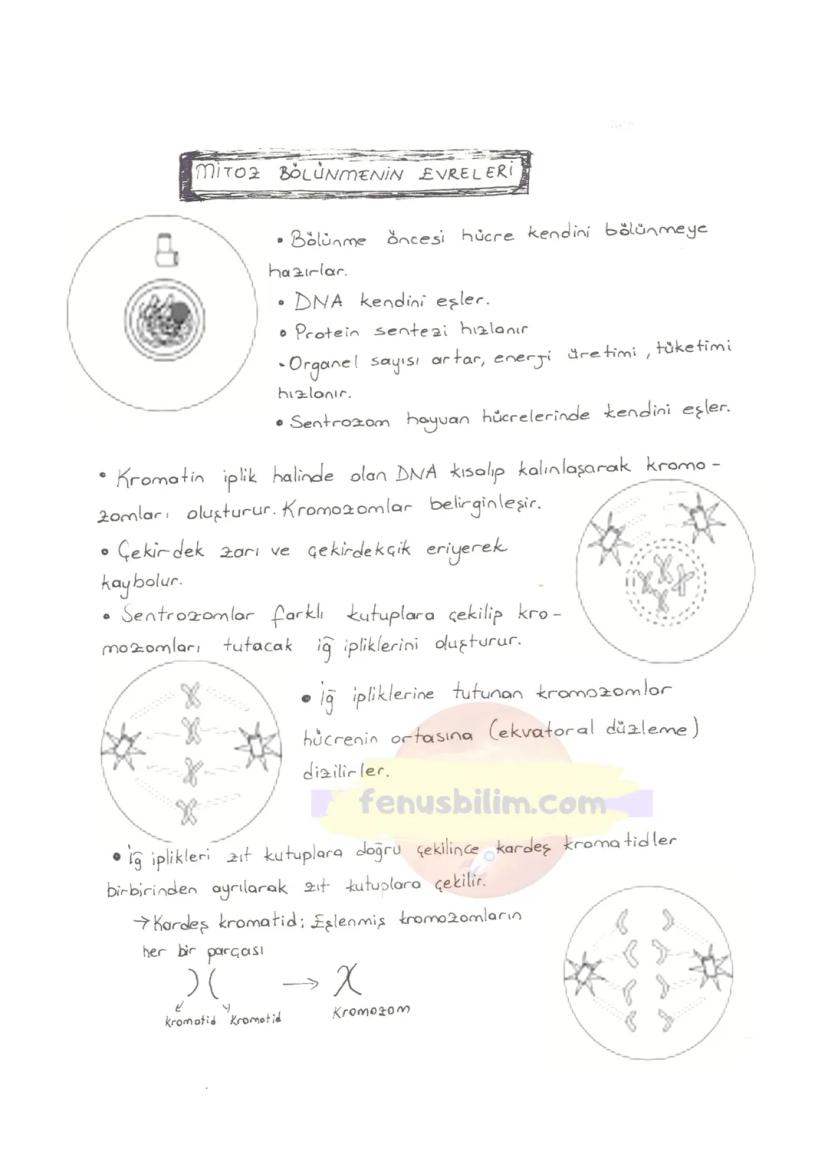 MİTOZ BÖLÜNMENİN EVRELERİ
• Bölünme öncesi hücre kendini bölünmeye
hazırlar.
• DNA kendini eşler.
• Protein sentezi hızlanır
• Organel sayısı artar, enerji üretimi, tüketimi
hızlanır.
• Sentrozom hayvan hücrelerinde kendini eşler.
• Kromatin iplik halinde olan DNA kısalıp kalınlaşarak kromo-
zomları oluşturur. Kromozomlar belirginleşir.
• Çekirdek zarı ve çekirdekçik eriyerek
kaybolur.
• Sentrozomlar farklı kutuplara çekilip kro-
mozomları tutacak iğ ipliklerini oluşturur.
• İğ ipliklerine tutunan kromozomlar
hücrenin ortasına (ekvatoral düzleme)
dizilirler.
fenusbilim.com
• İğ iplikleri zıt kutuplara doğru çekilince kardeş kromatidler
birbirinden ayrılarak zıt kutuplara çekilir.
→ Kardeş kromatid: Eşlenmiş kromozomların
her bir parçası
Kromatid Kromatid
Kromozom